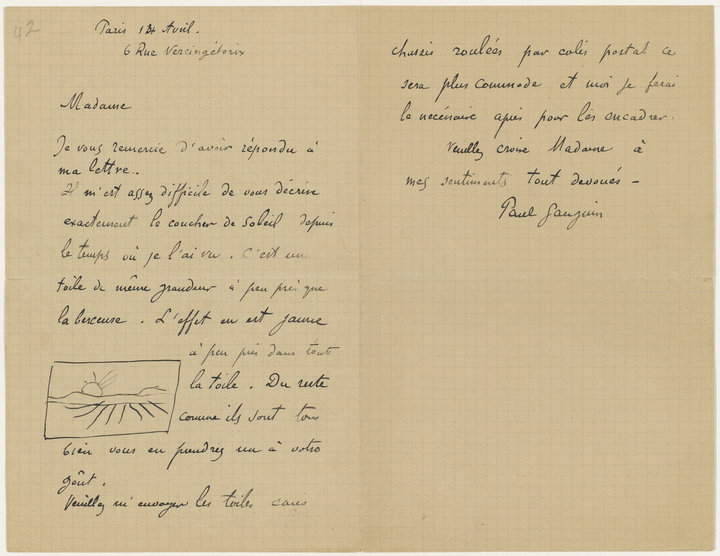 42
Paris 12 Avril.
6 Rue Vercingétorix
Madame
Je vous remercie d'avoir répondu à
ma lettre.
Il m'est assez difficile de vous décrire
exactement le coucher de soleil depuis
le temps où je l'ai vu. C'est une
toile de même grandeur à peu près que
la berceuse. L'effet en est jaune
à peu près dans toute
la toile. Du reste
comme ils sont tous
bien vous en prendrez un à votre
goût.
Veuillez m'envoyer les toiles sans
chassis roulées par colis postal ce
sera plus commode et moi je ferai
le nécessaire après pour les encadrer.
Veuillez croire Madame à
mes sentiments tout devoués -
Paul Gauguin